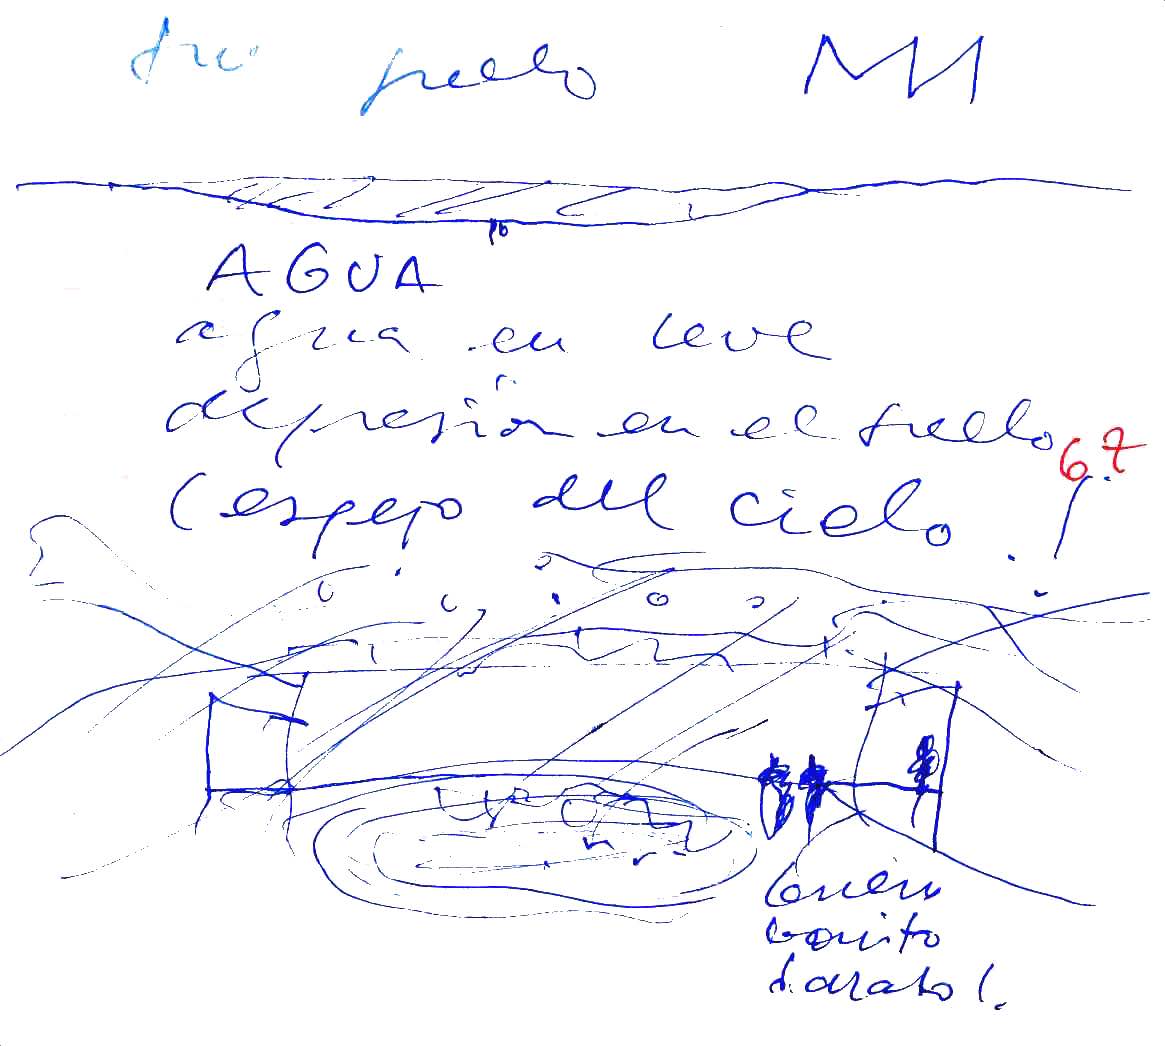 suelo
AGUA
agua en leve
depresión en el suelo
67
(espejo del cielo.!
bonito
barato!.